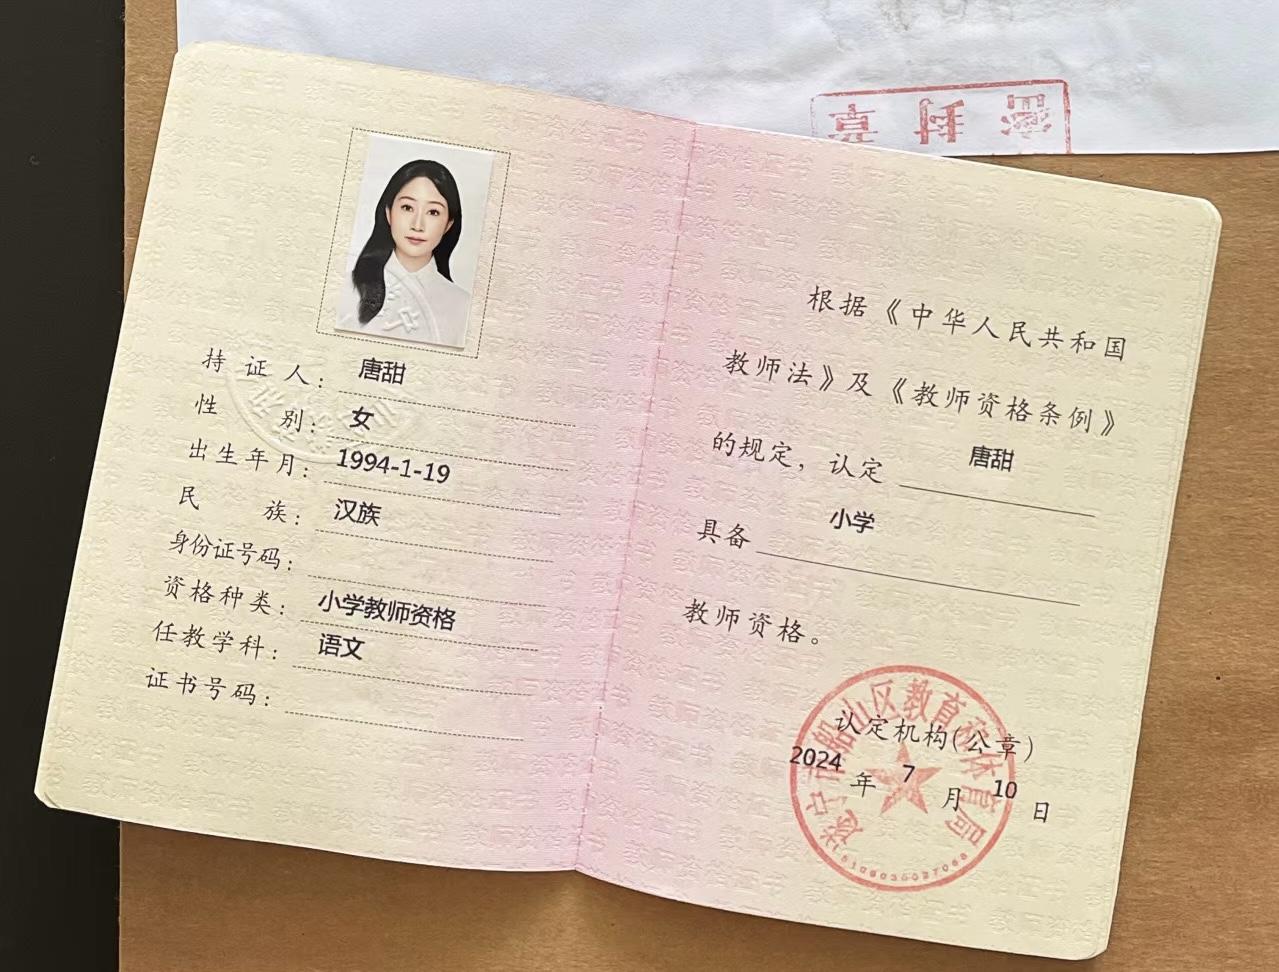 密封章
持证人：唐甜
性别：女
出生年月：1994-1-19
民族：汉族
身份证号码：
资格种类：小学教师资格
任教学科：语文
证书号码：
根据《中华人民共和国
教师法》及《教师资格条例》
的规定，认定 唐甜
具备 小学
教师资格。
遂宁市船山区教育和体育局
认定机构(公章)
2024年7月10日